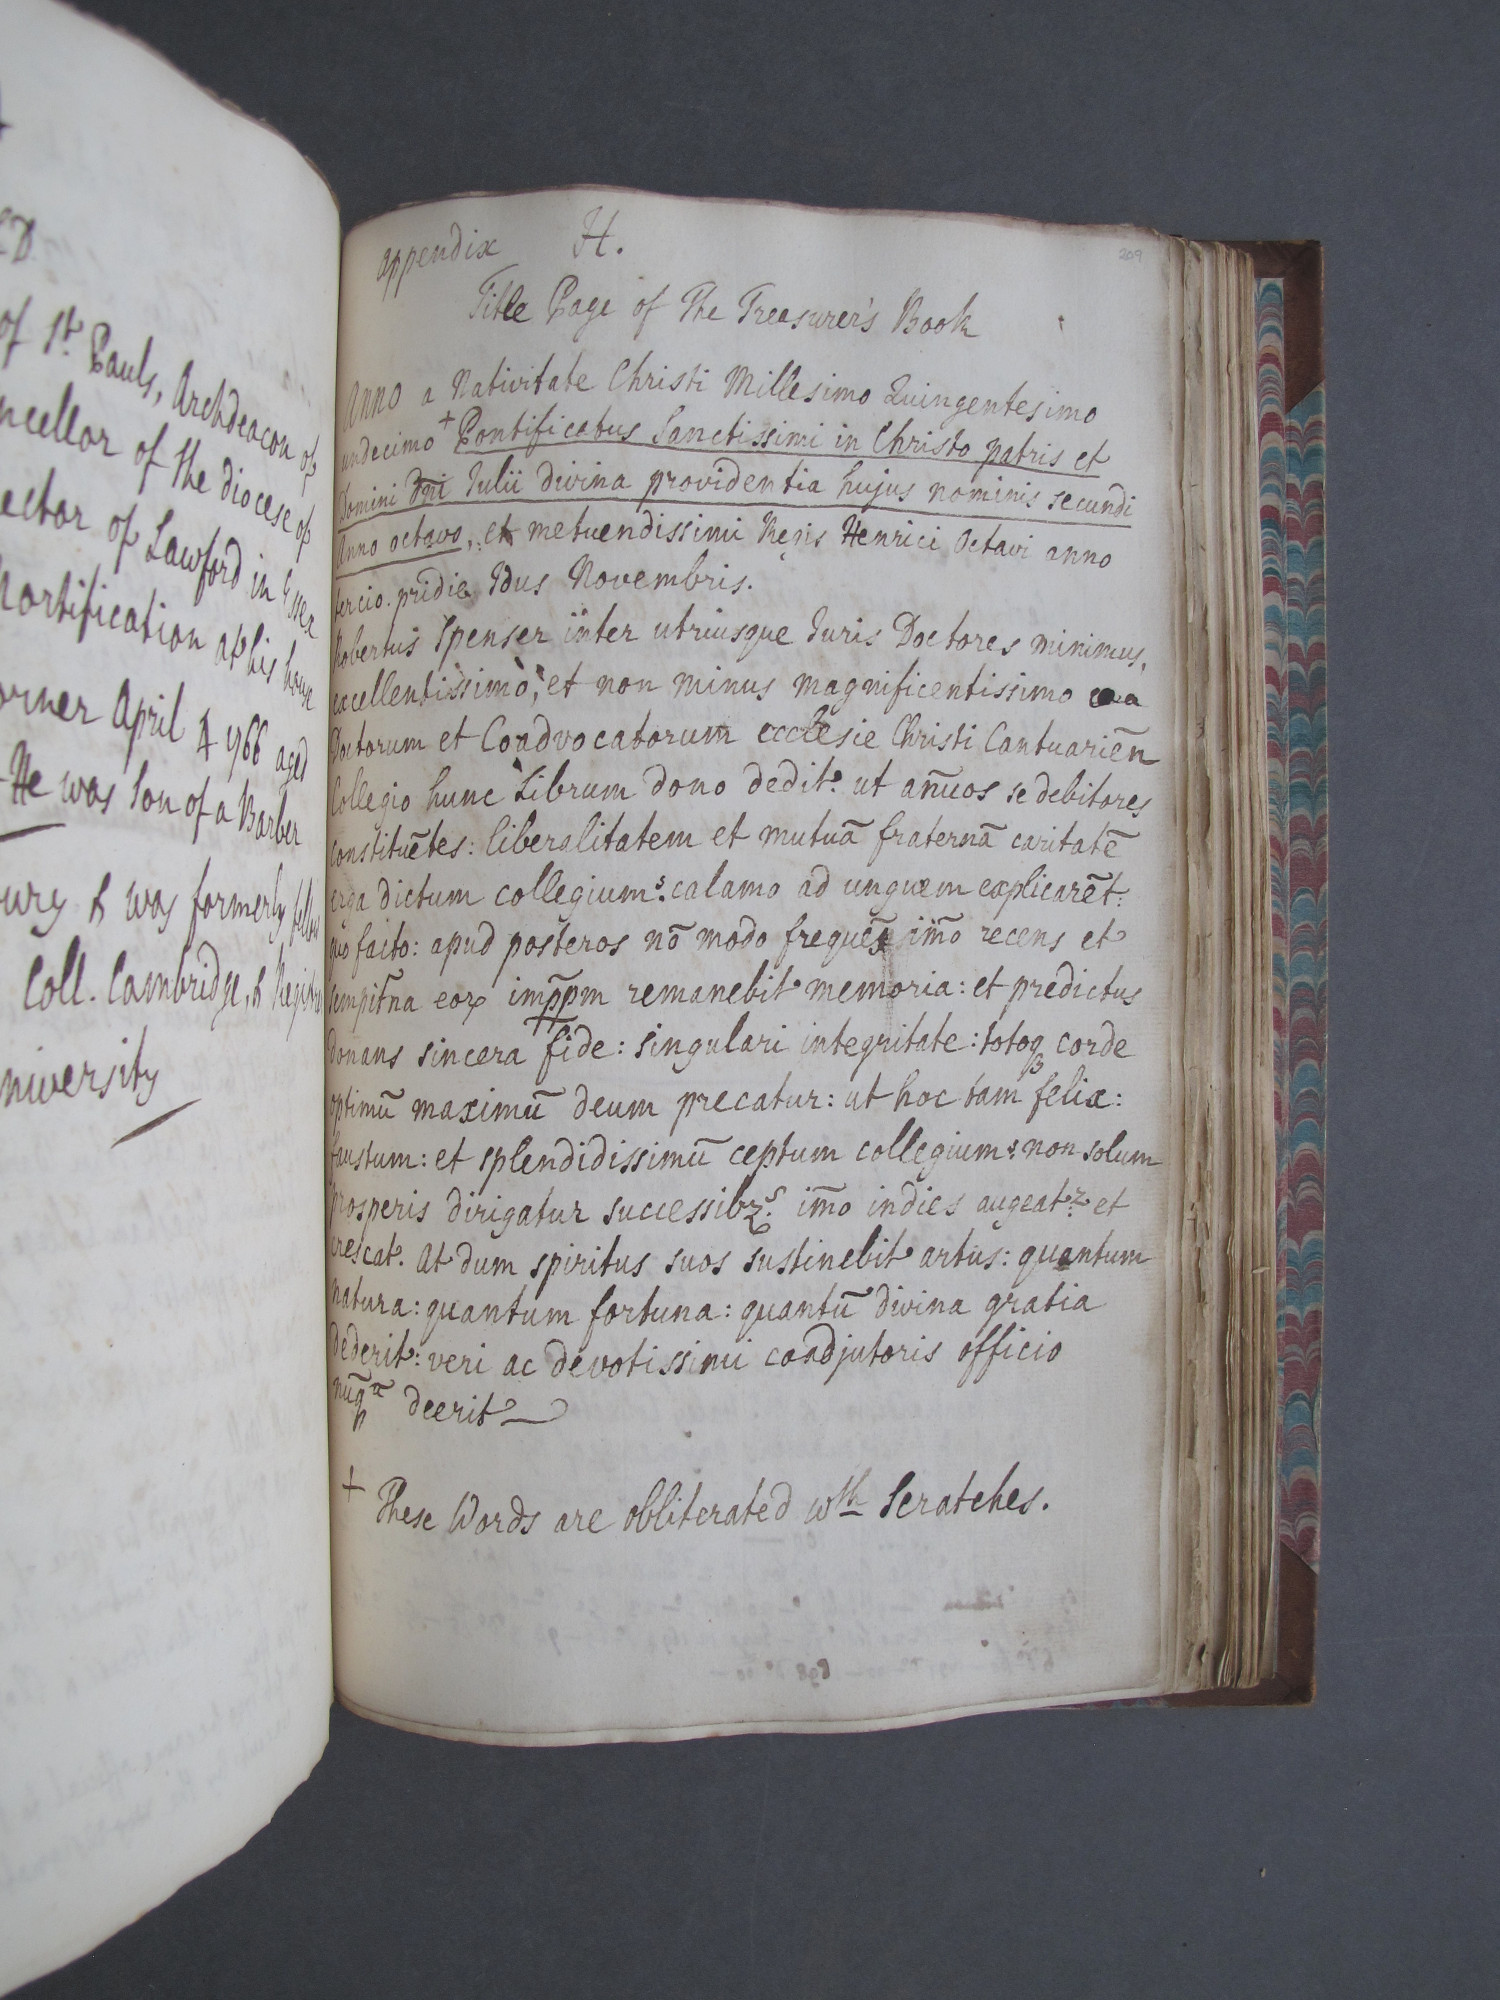 D
of St. Pauls, Archdeacon of
ncellor of the diocese of
ector of Lawford in Essex
Mortification at his house
orner April 4 1766 aged
He was Son of a Barber
ury & was formerly fellow
Coll. Cambridge, & Regist
niversity
appendix H.
209
Title Page of The Treasurer's Book
Anno a Nativitate Christi Millesimo Quingentesimo
undecimo + Pontificatus Sanctissimi in Christo patris et
Domini Dñi Julii divina providentia hujus nominis secundi
Anno octavo, et metuendissimi Regis Henrici Octavi anno
tercio. pridie Idus Novembris.
Robertus Spenser inter utriusque Juris Doctores minimus,
excellentissimo, et non minus magnificentissimo
Doctorum et Coadvocatorum ecclesie Christi Cantuariēn
Collegio hunc Librum dono dedit: ut añuos se debitores
constituētes: liberalitatem et mutuā fraternā caritatē
erga dictum collegium: calamo ad unguem explicarēt:
quo facto: apud posteros nō modo frequēssim̄o recens et
sempit̄na eoꝝ imp̄p̄m remanebit memoria: et predictus
donans sincera fide: singulari integritate: totoqꝫ corde
optimū maximū deum precatur: ut hoc tam felix:
faustum: et splendidissimū ceptum collegium: non solum
prosperis dirigatur successibꝫ: im̄o indies augeatr: et
crescat. At dum spiritus suos sustinebit artus: quantum
natura: quantum fortuna: quantū divina gratia
dederit: veri ac devotissimi coadjutoris officio
nūqa deerit
+ These Words are obliterated wth Scratches.